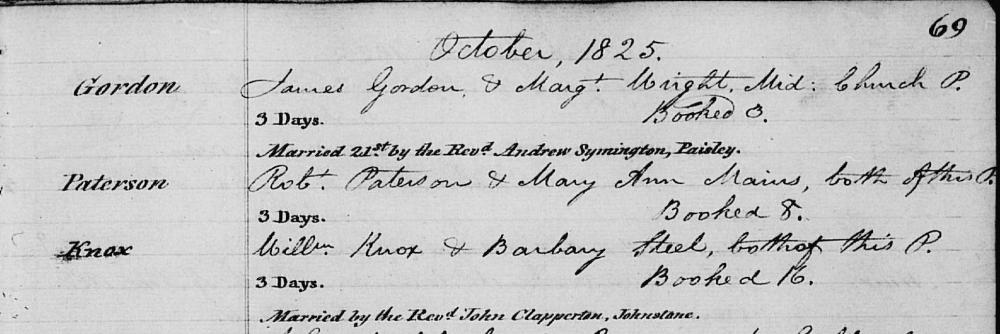 69
October, 1825.
Gordon James Gordon, & Margt. Wright, Mid: Church P.
3 Days. Booked 3.
Married 21st. by the Revd. Andrew Symington, Paisley.
Paterson Robt. Paterson & Mary Ann Mains, both of this P.
3 Days. Booked 8.
Knox Willm. Knox & Barbary Steel, both of this P.
3 Days. Booked 16.
Married by the Revd. John Clapperton, Johnstone.